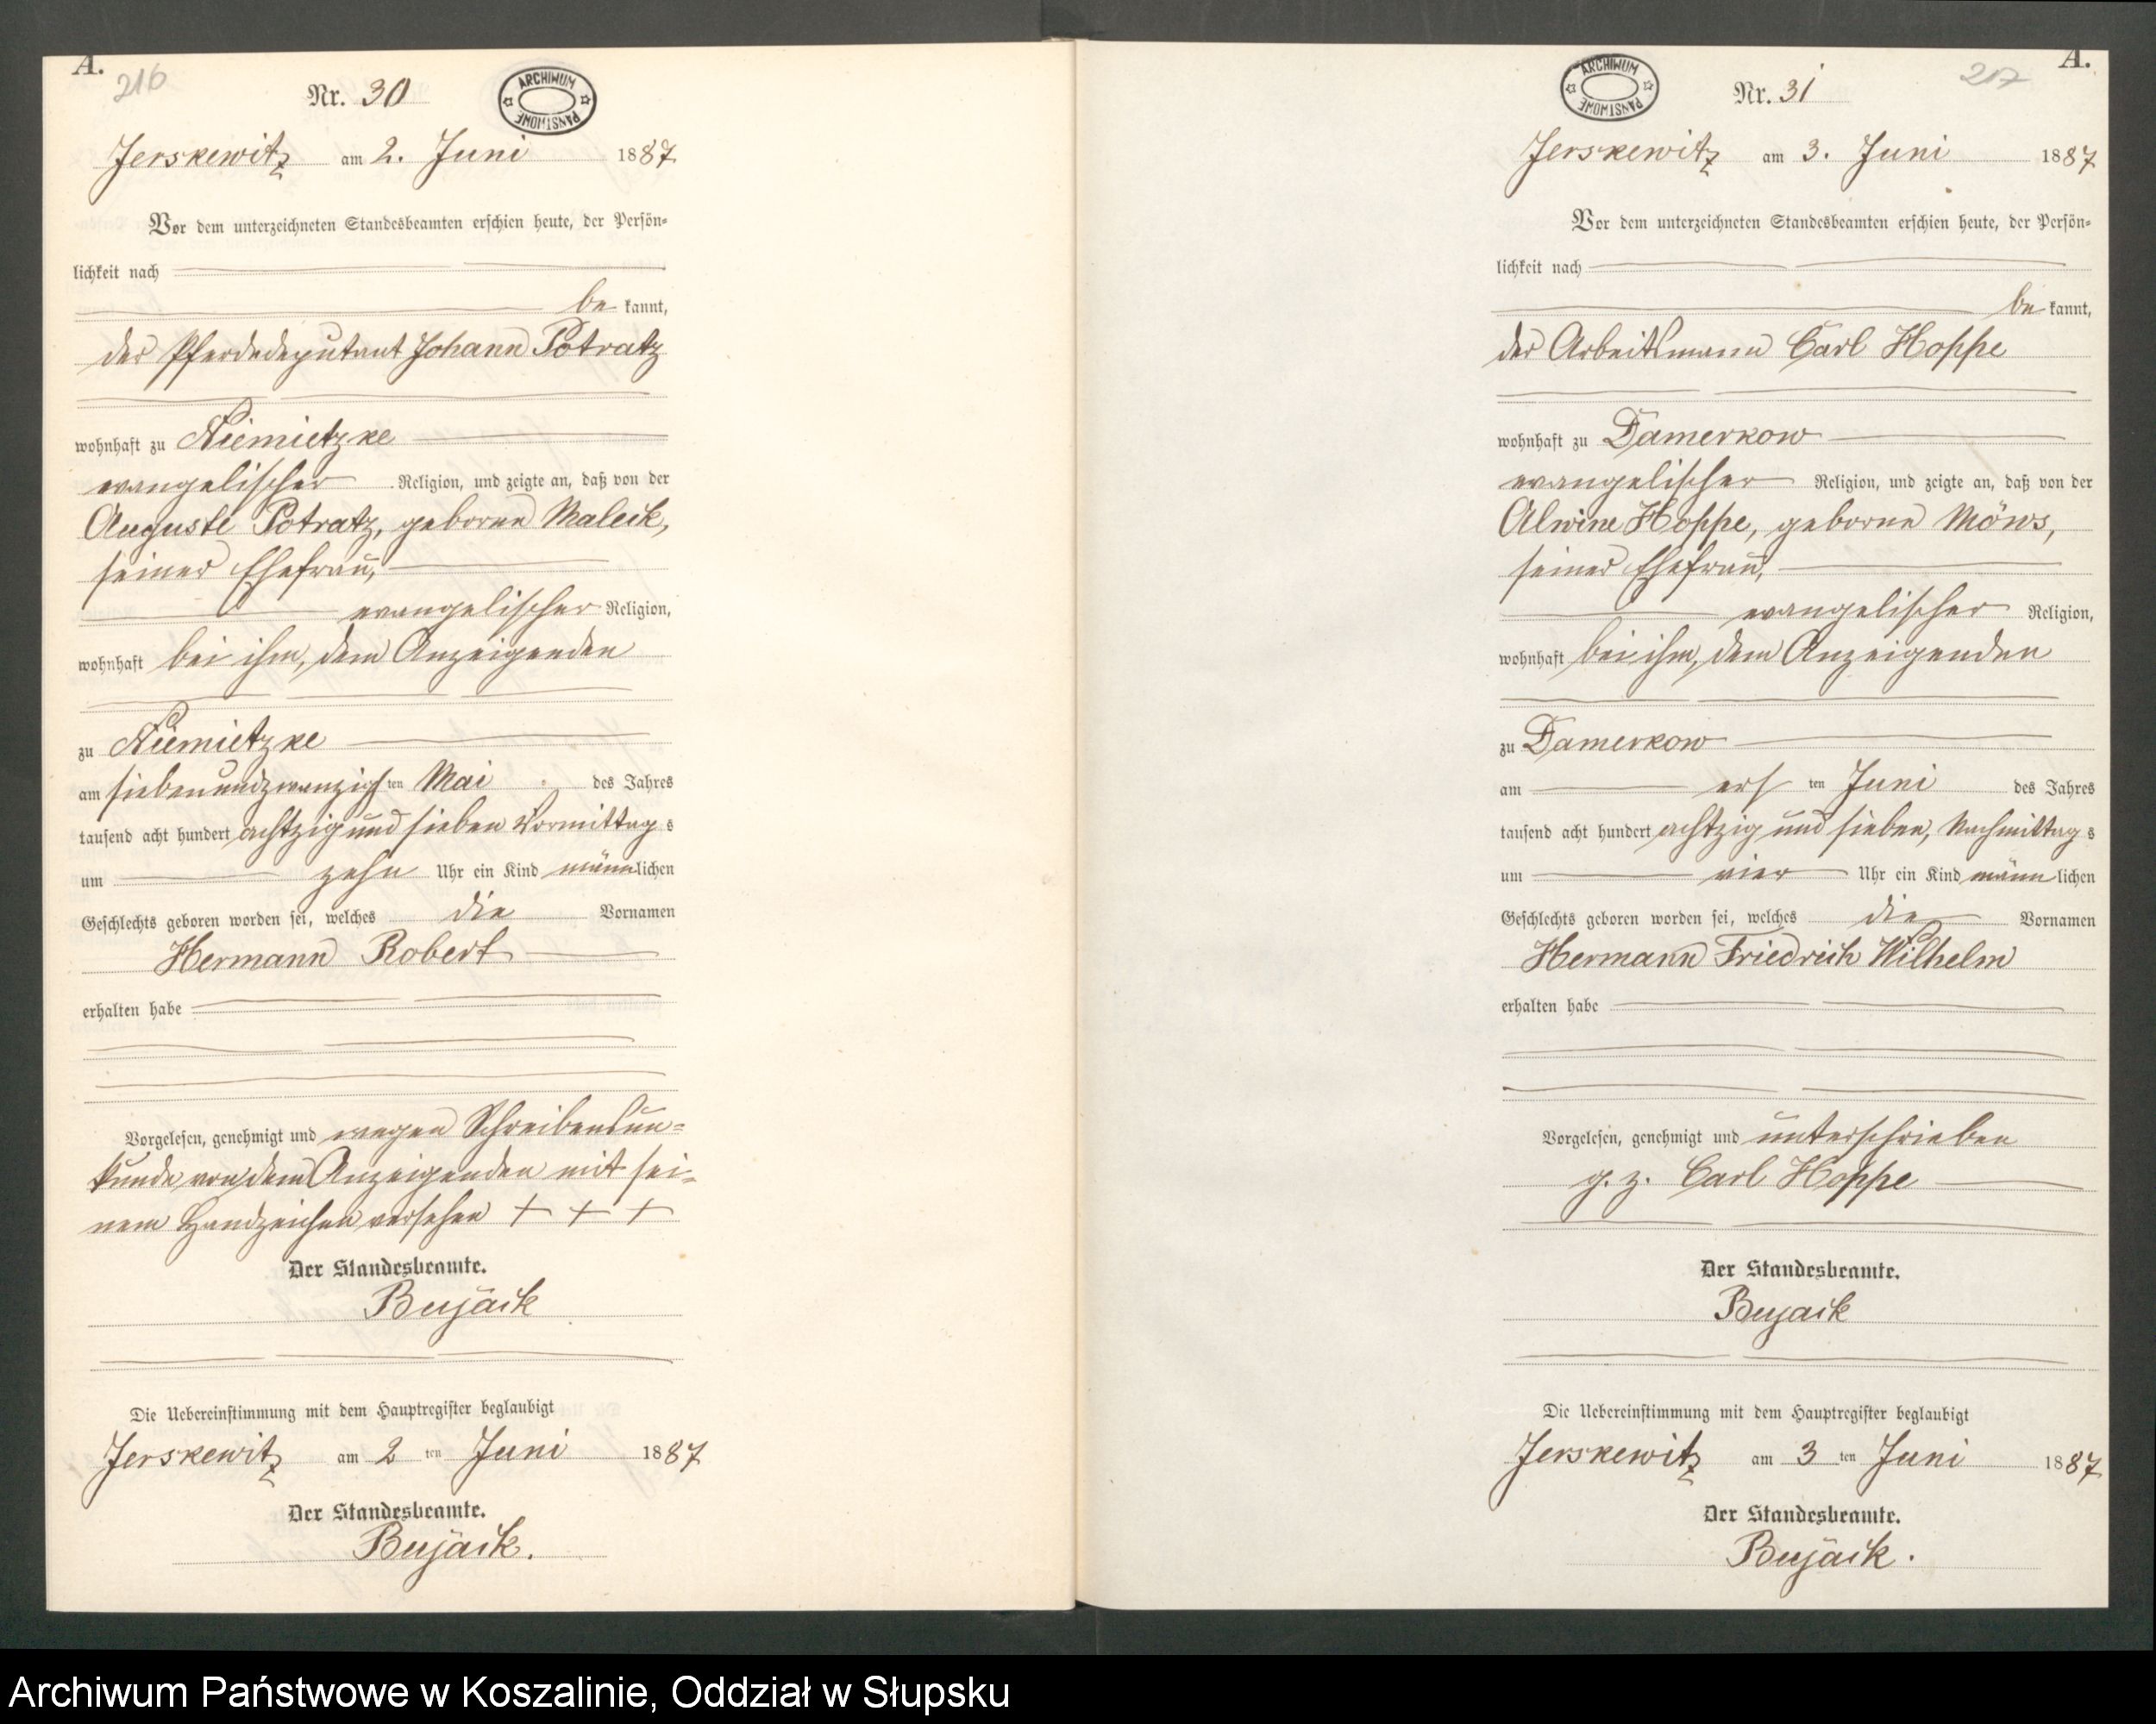 A.
216
Nr. 30
ARCHIWUM PAŃSTWOWE
Jerskewitz am 2. Juni 1887
Vor dem unterzeichneten Standesbeamten erschien heute, der Persön-
lichkeit nach
be kannt,
der Pferdedeputant Johann Potratz
wohnhaft zu Niemietzke
evangelischer Religion, und zeigte an, daß von der
Auguste Potratz, geborne Maleik,
seiner Ehefrau,
evangelischer Religion,
wohnhaft bei ihm, dem Anzeigenden
zu Niemietzke
am siebenundzwanzigsten Mai des Jahres
tausend acht hundert achtzig und sieben Vormittags
um zehn Uhr ein Kind männlichen
Geschlechts geboren worden sei, welches die Vornamen
Hermann Robert
erhalten habe
Vorgelesen, genehmigt und wegen Schreibensun-
kunde von dem Anzeigenden mit sei-
nem Handzeichen versehen + + +
Der Standesbeamte.
Bujack
Die Uebereinstimmung mit dem Hauptregister beglaubigt
Jerskewitz am 2 ten Juni 1887
Der Standesbeamte.
Bujack.
A.
217
Nr. 31
ARCHIWUM PAŃSTWOWE
Jerskewitz am 3. Juni 1887
Vor dem unterzeichneten Standesbeamten erschien heute, der Persön-
lichkeit nach
be kannt,
der Arbeitsmann Carl Hoppe
wohnhaft zu Damerkow
evangelischer Religion, und zeigte an, daß von der
Alwine Hoppe, geborne Möws,
seiner Ehefrau,
evangelischer Religion,
wohnhaft bei ihm, dem Anzeigenden
zu Damerkow
am ersten Juni des Jahres
tausend acht hundert achtzig und sieben, Nachmittags
um vier Uhr ein Kind männlichen
Geschlechts geboren worden sei, welches die Vornamen
Hermann Friedrich Wilhelm
erhalten habe
Vorgelesen, genehmigt und unterschrieben
g. z. Carl Hoppe
Der Standesbeamte.
Bujack
Die Uebereinstimmung mit dem Hauptregister beglaubigt
Jerskewitz am 3 ten Juni 1887
Der Standesbeamte.
Bujack.
Archiwum Państwowe w Koszalinie, Oddział w Słupsku